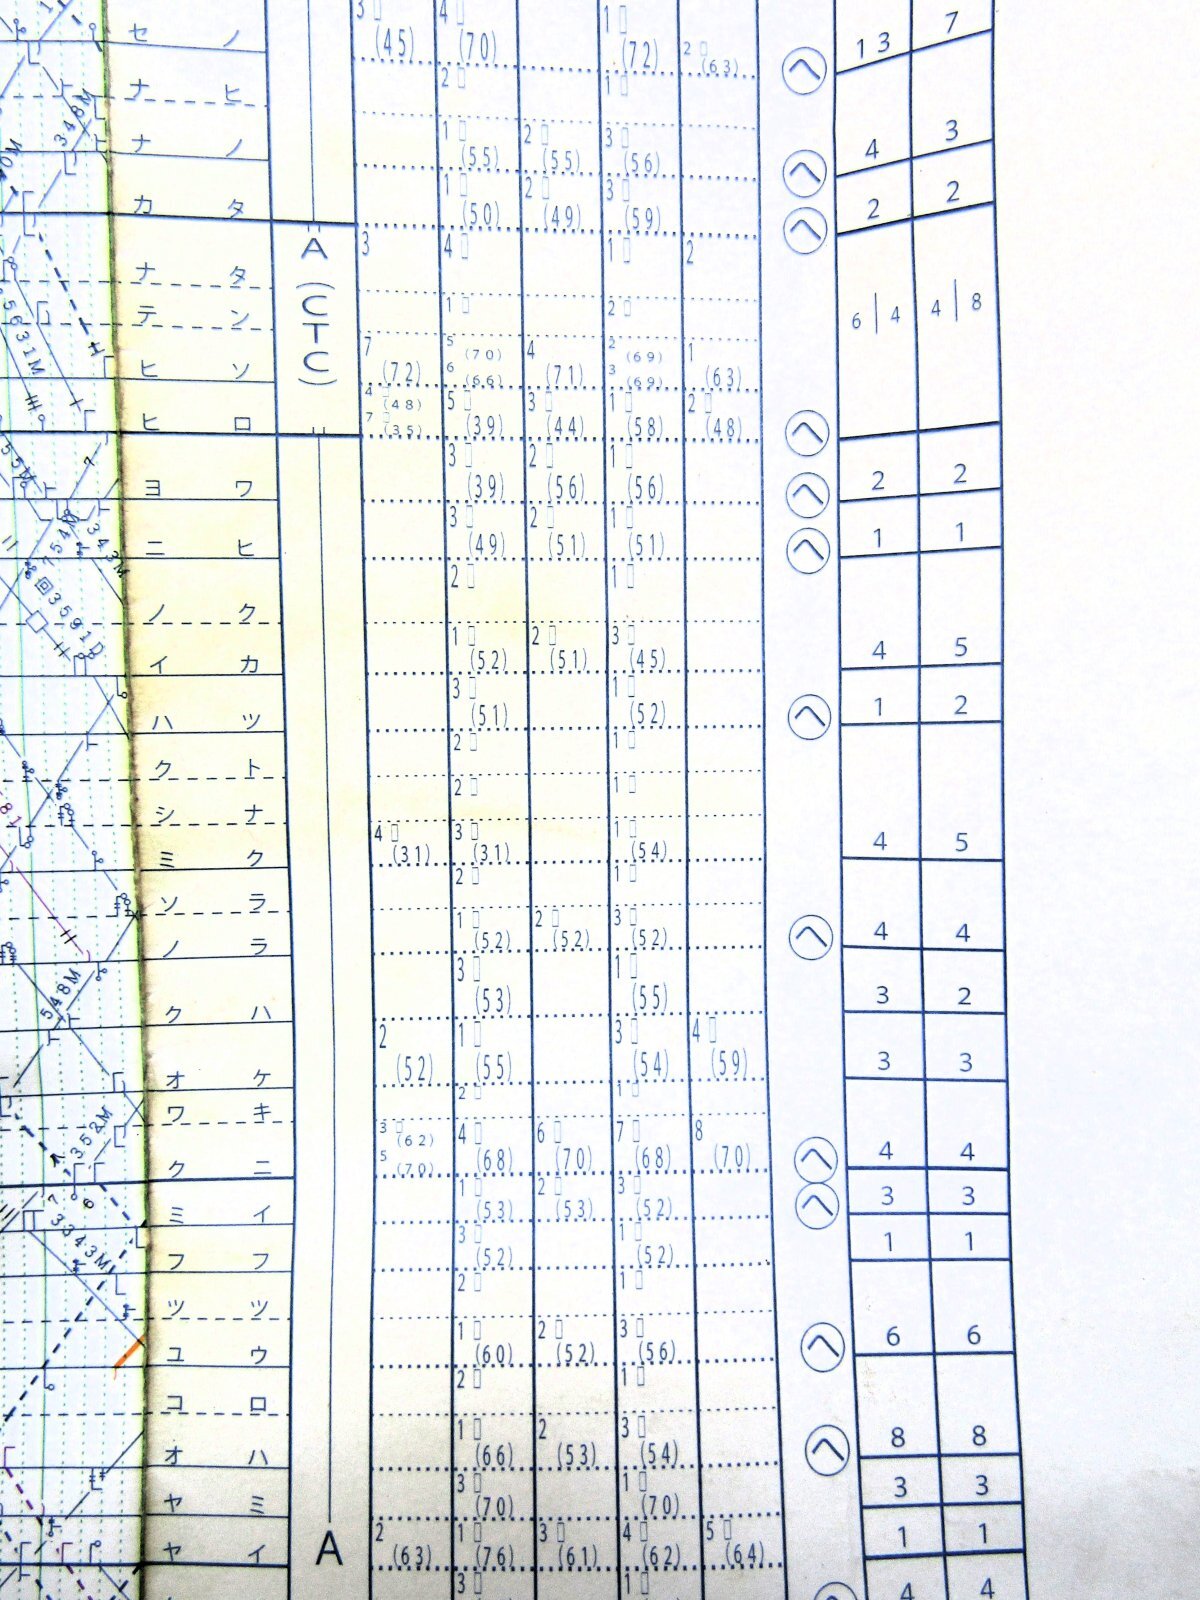 セ ノ 3▯ (45) 4▯ (70) 1▯ (72) 2▯ (63) ヘ 13 7
ナ ヒ 2▯ 1▯
ナ ノ 1▯ (55) 2▯ (55) 3▯ (56) ヘ 4 3
カ タ 1▯ (50) 2▯ (49) 3▯ (59) ヘ 2 2
ナ タ 3 4▯ 1▯ 2
テ ン 1▯ 2▯ 6|4 4|8
A(CTC)
ヒ ソ 7 (72) 5 (70) 6 (66) 4 (71) 2 (69) 3 (69) 1 (63)
ヒ ロ 4▯ (48) 7▯ (35) 5▯ (39) 3▯ (44) 1▯ (58) 2▯ (48) ヘ
ヨ ワ 3▯ (39) 2▯ (56) 1▯ (56) ヘ 2 2
ニ ヒ 3▯ (49) 2▯ (51) 1▯ (51) ヘ 1 1
ノ ク 2▯ 1▯
イ カ 1▯ (52) 2▯ (51) 3▯ (45) 4 5
ハ ツ 3▯ (51) 1▯ (52) ヘ 1 2
ク ト 2▯ 1▯
シ ナ 2▯ 1▯
ミ ク 4▯ (31) 3▯ (31) 1▯ (54) 4 5
ソ ラ 2▯ 1▯
ノ ラ 1▯ (52) 2▯ (52) 3▯ (52) ヘ 4 4
ク ハ 3▯ (53) 1▯ (55) 3 2
オ ケ 2 (52) 1▯ (55) 3▯ (54) 4▯ (59) 3 3
ワ キ 2▯ 1▯
ク ニ 3▯ (62) 5 (70) 4▯ (68) 6▯ (70) 7▯ (68) 8 (70) ヘ 4 4
ミ イ 1▯ (53) 2▯ (53) 3▯ (52) ヘ 3 3
フ フ 3▯ (52) 1▯ (52) 1 1
ツ ツ 2▯ 1▯
ユ ウ 1▯ (60) 2▯ (52) 3▯ (56) ヘ 6 6
コ ロ 2▯ 1▯
オ ハ 1▯ (66) 2 (53) 3▯ (54) ヘ 8 8
ヤ ミ 3▯ (70) 1▯ (70) 3 3
ヤ イ A 2 (63) 1▯ (76) 3▯ (61) 4▯ (62) 5▯ (64) 1 1
3▯ 1▯ 4 4
348M
5631M
754M
343M
3591D
548M
352M
3343M